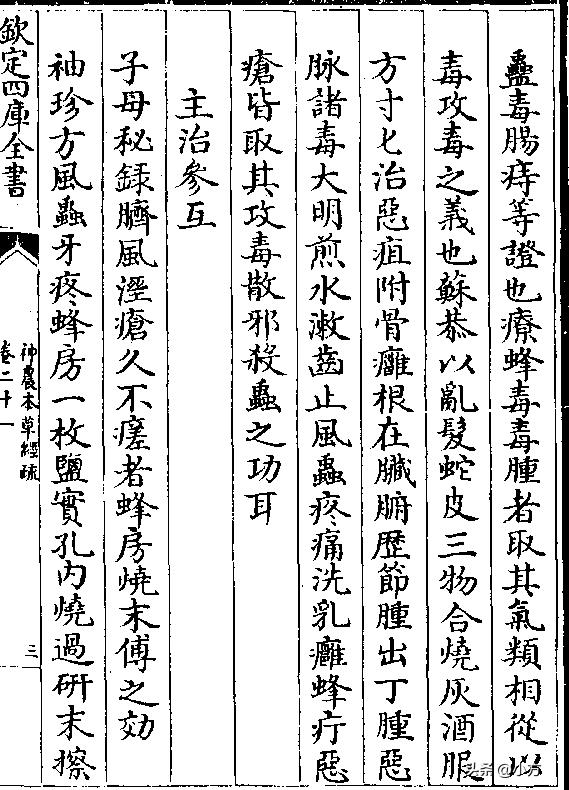 蠱毒腸痔等證也療蜂毒毒腫者取其氣類相從以
毒攻毒之義也蘇恭以亂髮蛇皮三物合燒灰酒服
方寸匕治惡疽附骨癰根在臟腑歷節腫出丁腫惡
脉諸毒大明煎水漱齒止風蟲疼痛洗乳癰蜂疔惡
瘡皆取其攻毒散邪殺蟲之功耳
主治參互
子母秘録臍風溼瘡久不瘥者蜂房燒末傅之効
袖珍方風蟲牙疼蜂房一枚鹽實孔内燒過研末擦
欽定四庫全書
神農本草經疏
卷二十一
三
头条@小方